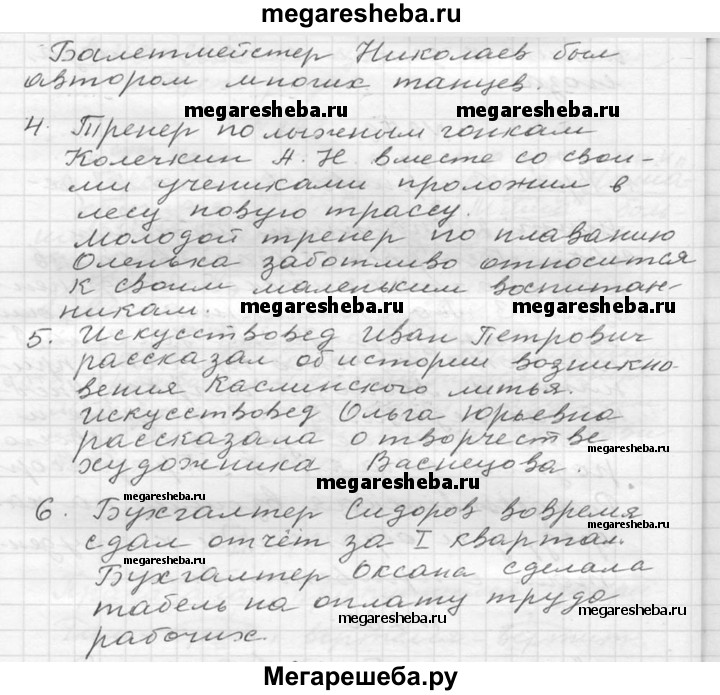 megaresheba.ru
Балетмейстер Николаев был
автором многих танцев.
megaresheba.ru megaresheba.ru
4. Тренер по лыжным гонкам
Колечкин А. Н. вместе со свои-
ми учениками проложил в
лесу новую трассу.
Молодой тренер по плаванию
Оленька заботливо относится
к своим маленьким воспитан-
никам. megaresheba.ru megaresheba.ru
5. Искусствовед Иван Петрович
рассказал об истории возникно-
вения Каслинского литья.
Искусствовед Ольга Юрьевна
рассказала о творчестве
megaresheba.ru
художника Васнецова.
megaresheba.ru
megaresheba.ru
6. Бухгалтер Сидоров вовремя
megaresheba.ru
сдал отчёт за I квартал.
megaresheba.ru
Бухгалтер Оксана сделала
табель на оплату труда
megaresheba.ru
megaresheba.ru
рабочих.
Мегарешеба.ру